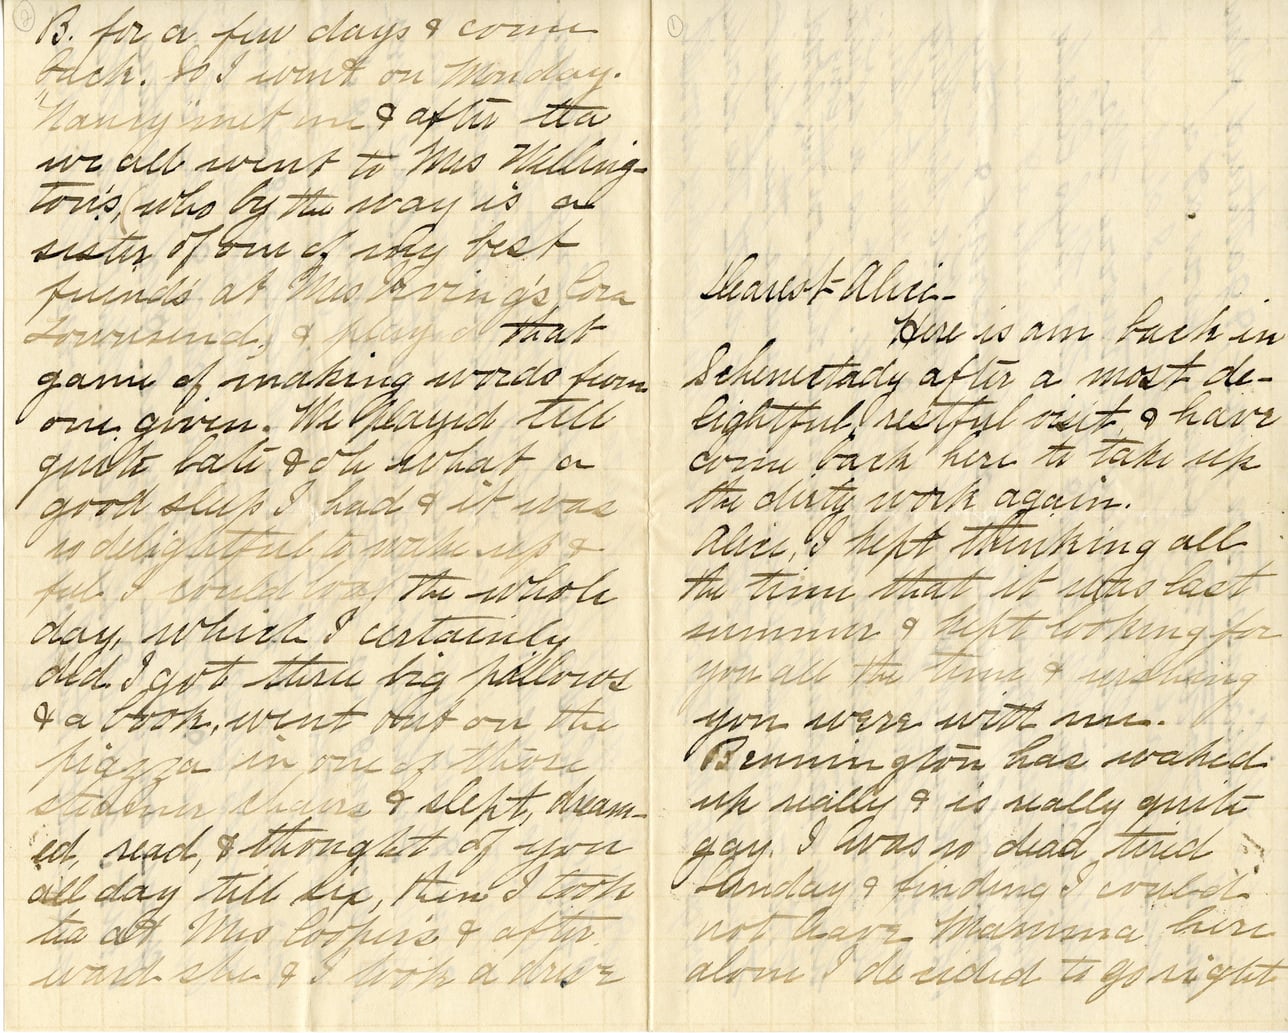 1
Dearest Alice-
Here is am back in
Schenectady after a most de-
lightful, restful visit, & have
come back here to take up
the dirty work again.
Alice, I kept thinking all
the time that it was last
summer & kept looking for
you all the time & wishing
you were with me.
Bennington has waked
up really & is really quite
gay. I was so dead tired
Sunday & finding I could
not leave Mamma here
alone I decided to go right
2
B. for a few days & come
back. So I went on Monday.
"Nancy" met me & after tea
we all went to Mrs Welling-
ton's, (who by the way is a
sister of one of my best
friends at Mrs Irving's Cora
Townsend, & played that
game of making words from
one given. We played till
quite late & oh what a
good sleep I had & it was
so delightful to wake up &
feel I could loaf the whole
day, which I certainly
did. I got three big pillows
& a book, went out on the
piazza in one of those
steamer chairs & slept, dream-
ed, read, & thought of you
all day till six, then I took
tea at Mrs Cooper's & after
ward she & I took a drive